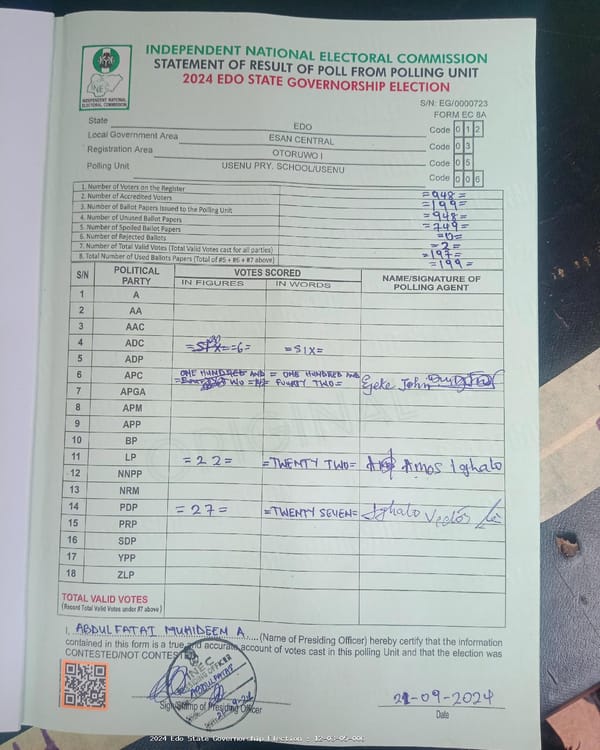 INDEPENDENT NATIONAL ELECTORAL COMMISSION
STATEMENT OF RESULT OF POLL FROM POLLING UNIT
2024 EDO STATE GOVERNORSHIP ELECTION
INEC
INDEPENDENT NATIONAL
ELECTORAL COMMISSION
S/N: EG/0000723
FORM EC 8A
State EDO Code 0 1 2
Local Government Area ESAN CENTRAL Code 0 3
Registration Area OTORUWO I Code 0 5
Polling Unit USENU PRY. SCHOOL/USENU Code 0 0 6
1. Number of Voters on the Register =948=
2. Number of Accredited Voters =199=
3. Number of Ballot Papers Issued to the Polling Unit =948=
4. Number of Unused Ballot Papers =749=
5. Number of Spoiled Ballot Papers =0=
6. Number of Rejected Ballots =2=
7. Number of Total Valid Votes (Total Valid Votes cast for all parties) =197=
8. Total Number of Used Ballots Papers (Total of #5 + #6 + #7 above) =199=
S/N POLITICAL PARTY VOTES SCORED NAME/SIGNATURE OF POLLING AGENT
IN FIGURES IN WORDS
1 A
2 AA
3 AAC
4 ADC =6= =SIX=
5 ADP
6 APC ONE HUNDRED AND = ONE HUNDRED AND FOURTY TWO= Ejeke John
7 APGA
8 APM
9 APP
10 BP
11 LP =22= =TWENTY TWO= Amos Ighalo
12 NNPP
13 NRM
14 PDP =27= =TWENTY SEVEN= Ighalo
15 PRP
16 SDP
17 YPP
18 ZLP
TOTAL VALID VOTES
(Record Total Valid Votes under #7 above)
I, ABDULFATAI MUHIDEEN A.... (Name of Presiding Officer) hereby certify that the information
contained in this form is a true and accurate account of votes cast in this polling Unit and that the election was
CONTESTED/NOT CONTESTED
INEC
PRESIDING OFFICER
ABDULFATAI
21-9-24
Sign/Stamp of Presiding Officer
21-09-2024
Date
2024 Edo State Governorship Election - 12-03-05-006